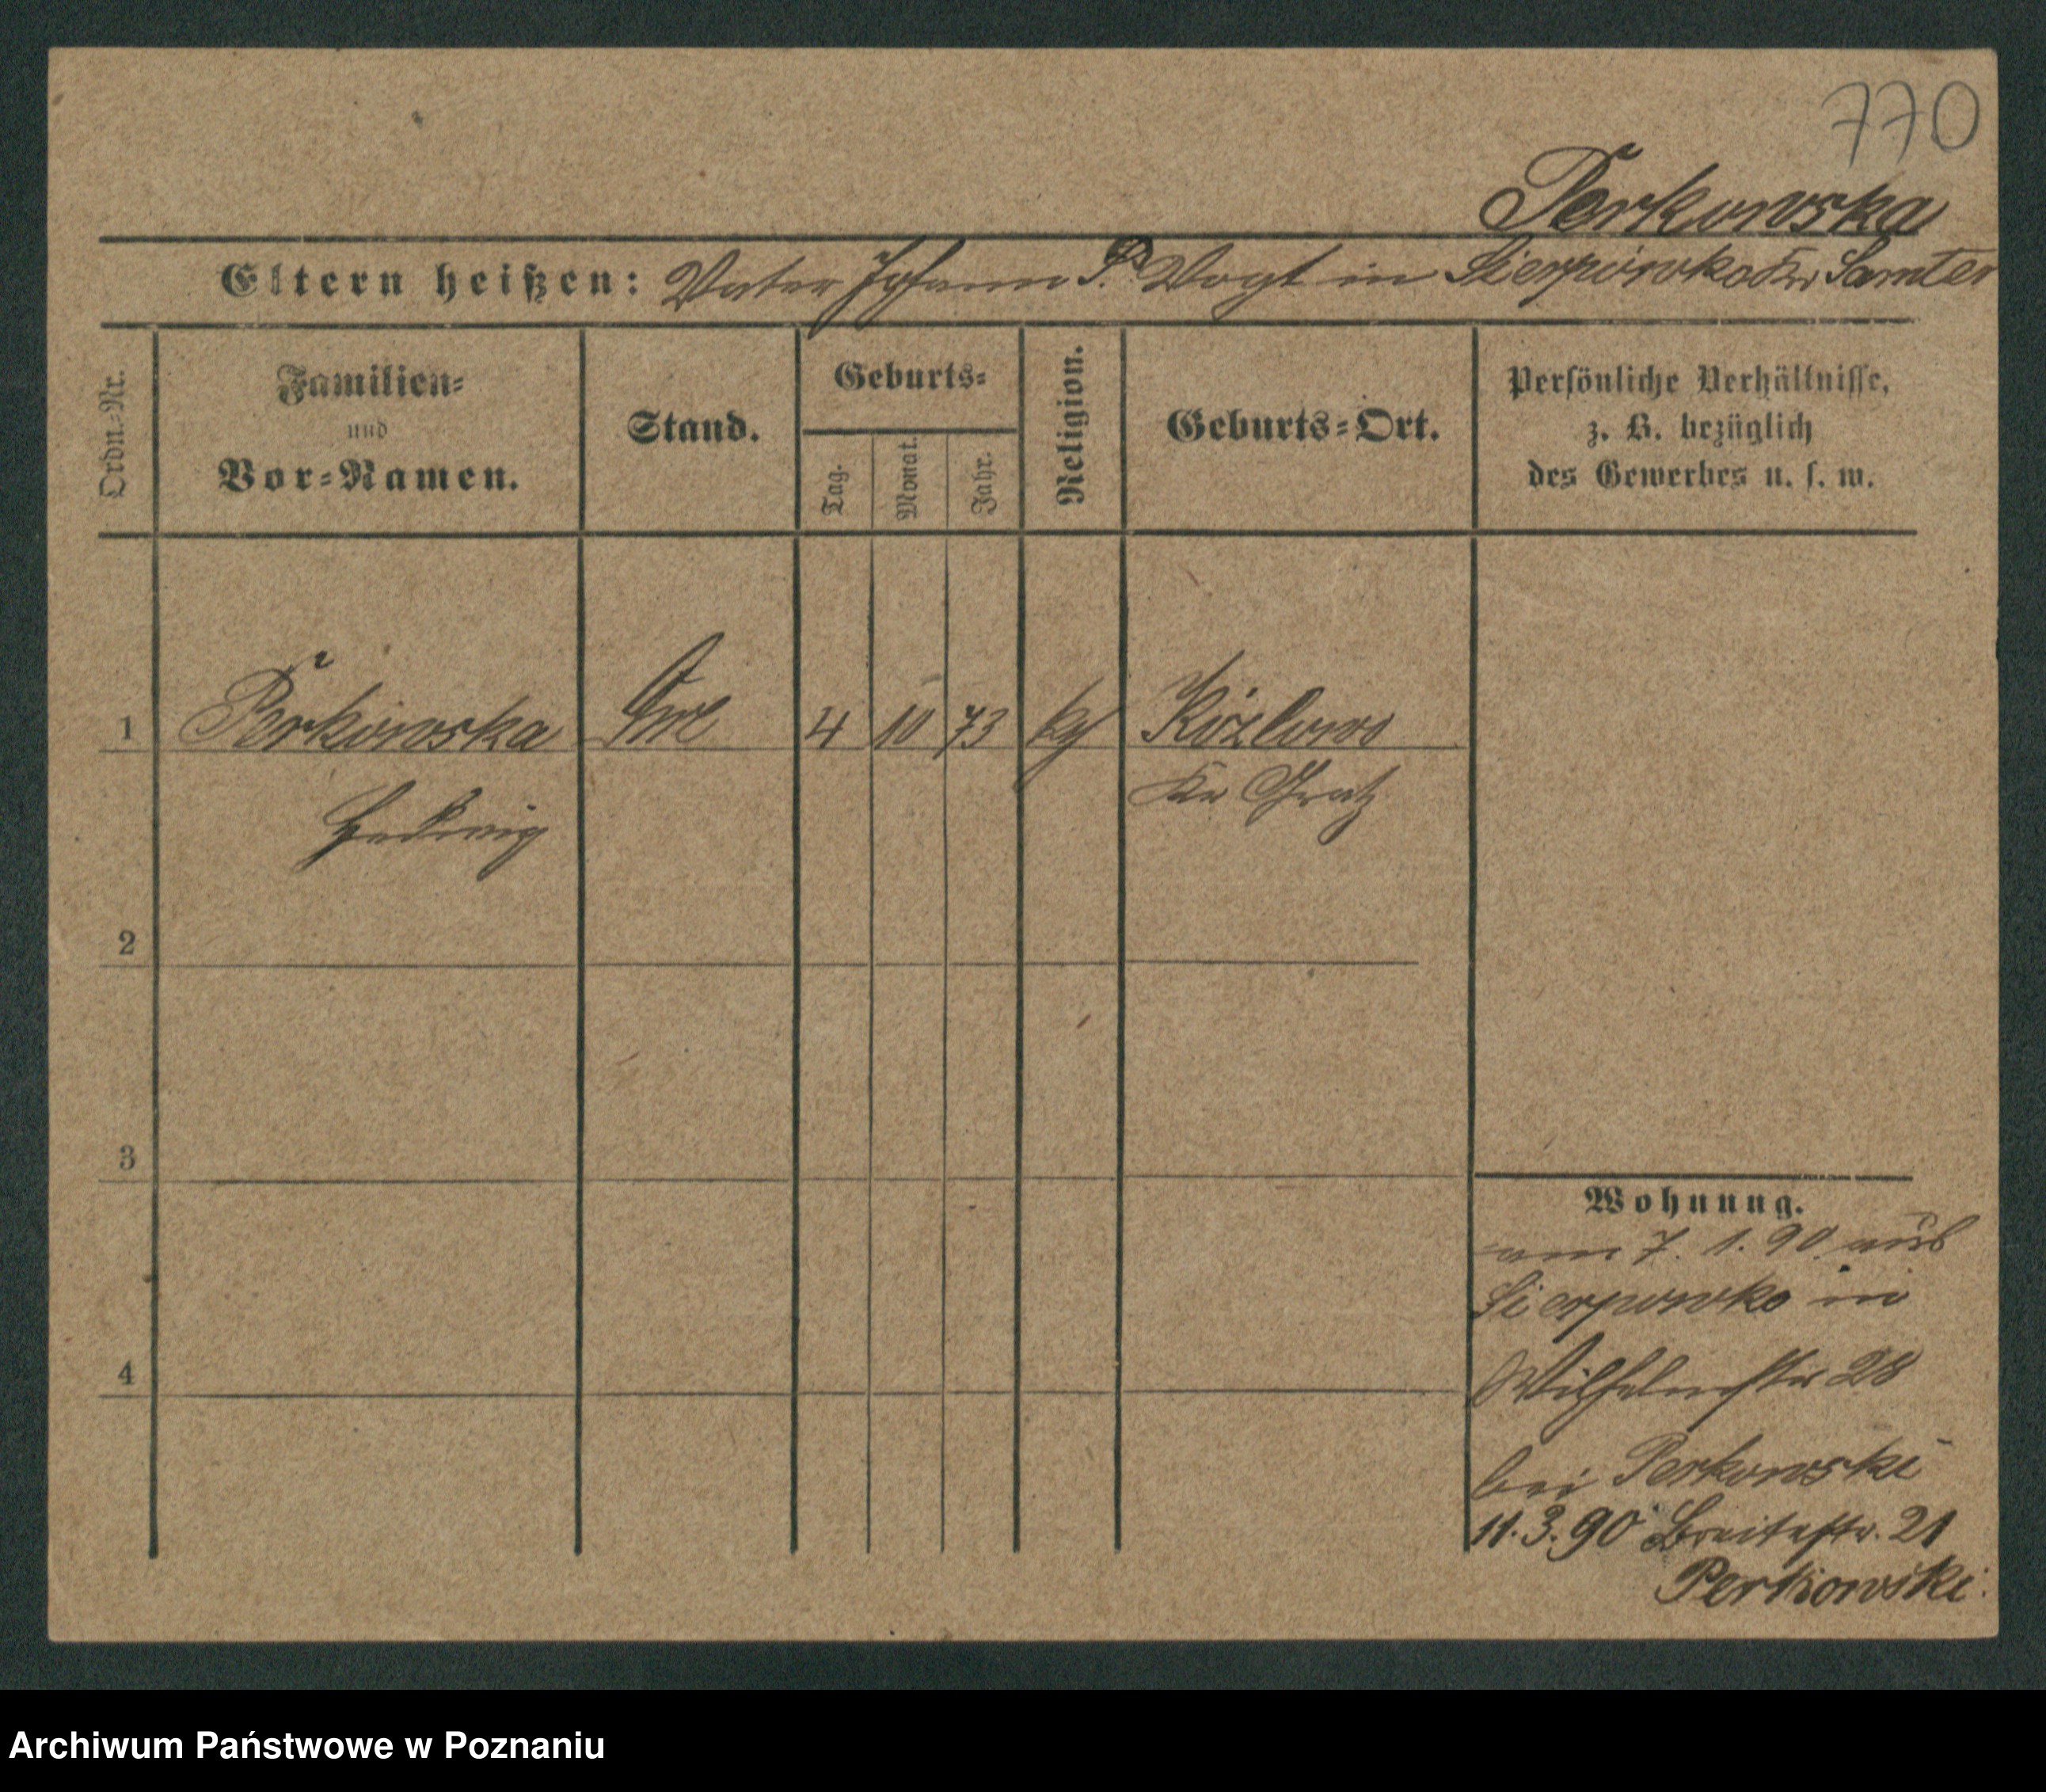 770
Perkowska
Eltern heißen: Vater Johann P. Vogt in Sierpówko Kr Samter
Ordn.-Nr.
Familien-
und
Vor-Namen.
Stand.
Geburts-
Tag.
Monat.
Jahr.
Religion.
Geburts-Ort.
Persönliche Verhältnisse,
z. B. bezüglich
des Gewerbes u. s. w.
1 Perkowska 4 10 73 kg Kozlowo
Hedwig Kr Gratz
2
3
4
Wohnung.
am 7. 1. 90 aus
Sierpowko in
Wilhelmstr 28
bei Perkowski
11. 3. 90 Breitestr. 21
Perkowski
Archiwum Państwowe w Poznaniu